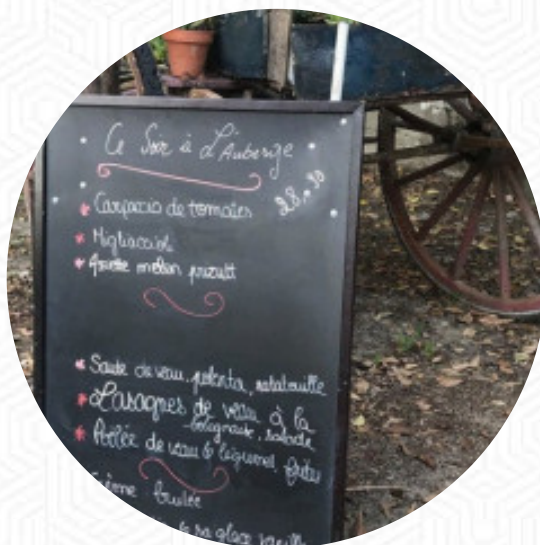 Ce Soir à L'Auberge
28,30
Carpacio de tomates
Migliacciol
Assiette melon prizutt
Sauté de veau, polenta, ratatouille
Lasagnes de veau à la
bolognaise, salade
Poêlée de veau & légumes, frites
Crème brulée
sa glace vanille